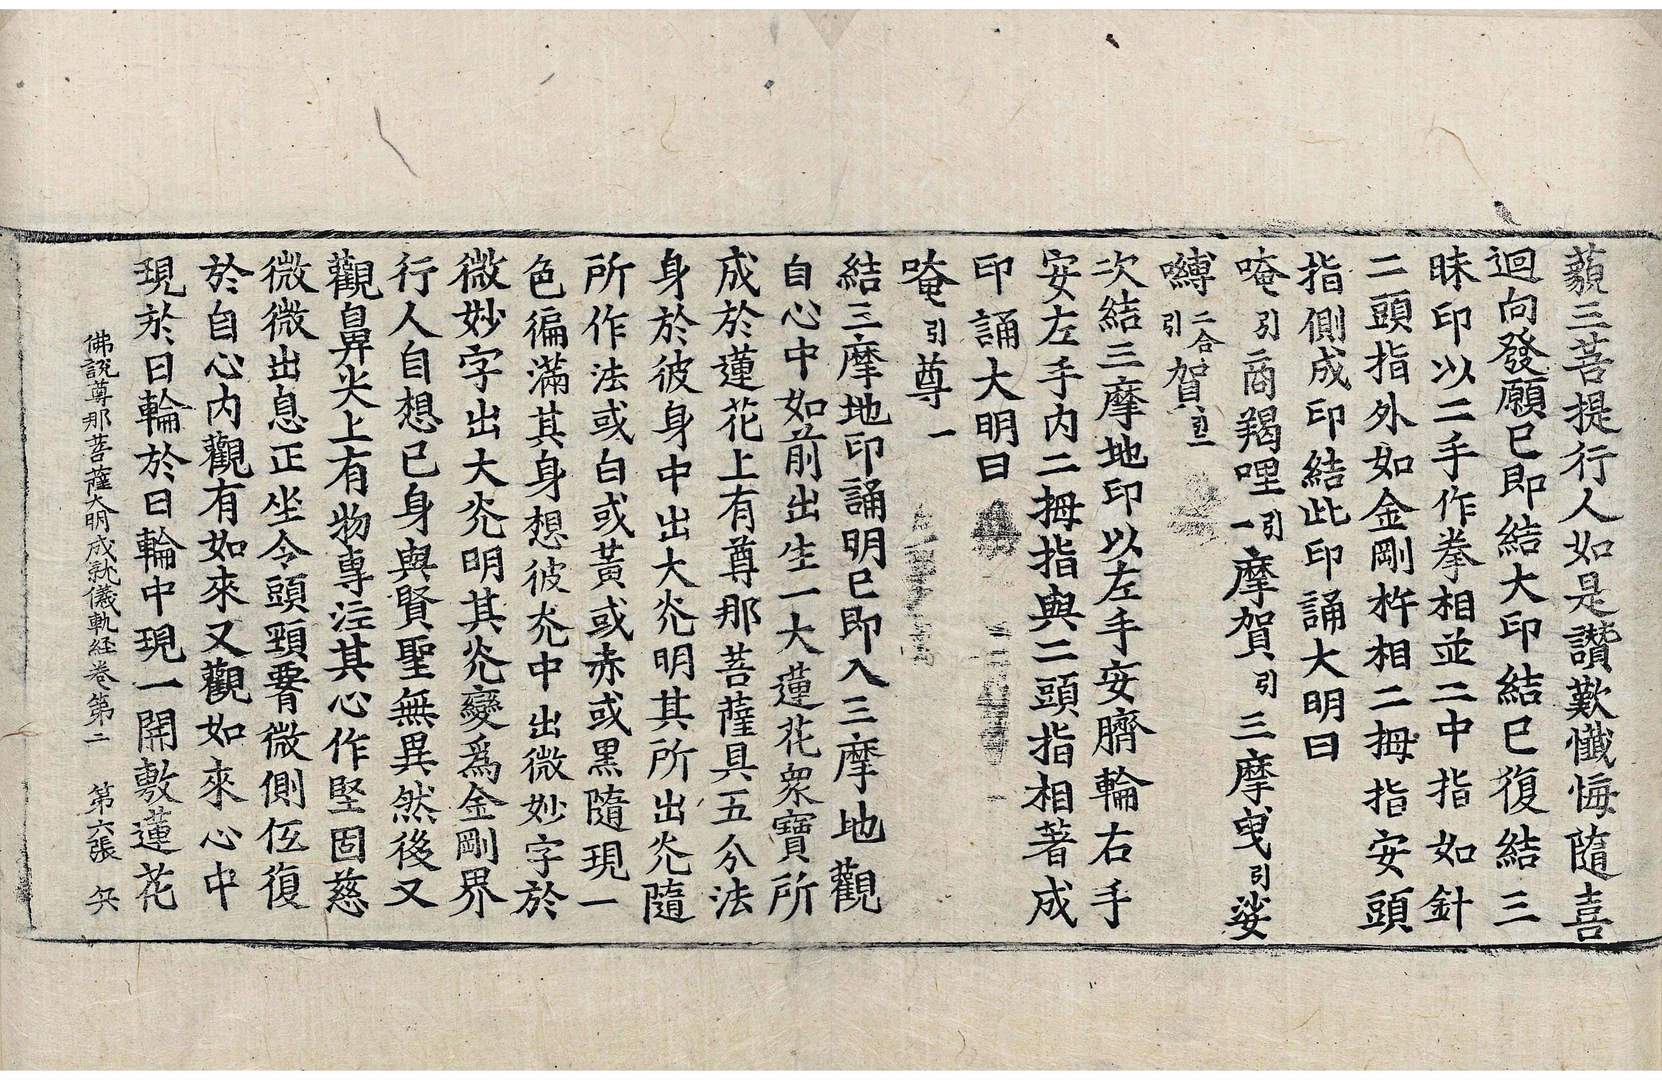 藐三菩提行人如是讚歎懺悔隨喜
迴向發願已即結大印結已復結三
昧印以二手作拳相並二中指如針
二頭指外如金剛杵相二拇指安頭
指側成印結此印誦大明曰
唵引商羯哩引一摩賀引三摩曳引娑
嚩二合引賀引二
次結三摩地印以左手安臍輪右手
安左手內二拇指與二頭指相著成
印誦大明曰
唵引尊一
結三摩地印誦明已即入三摩地觀
自心中如前出生一大蓮花眾寶所
成於蓮花上有尊那菩薩具五分法
身於彼身中出大光明其所出光隨
所作法或白或黃或赤或黑隨現一
色徧滿其身想彼光中出微妙字於
微妙字出大光明其光變為金剛界
行人自想己身與賢聖無異然後又
觀鼻尖上有物專注其心作堅固慈
微微出息正坐令頭頸脊微側伍復
於自心內觀有如來又觀如來心中
現於日輪於日輪中現一開敷蓮花
佛說尊那菩薩大明成就儀軌経卷第二 第六張